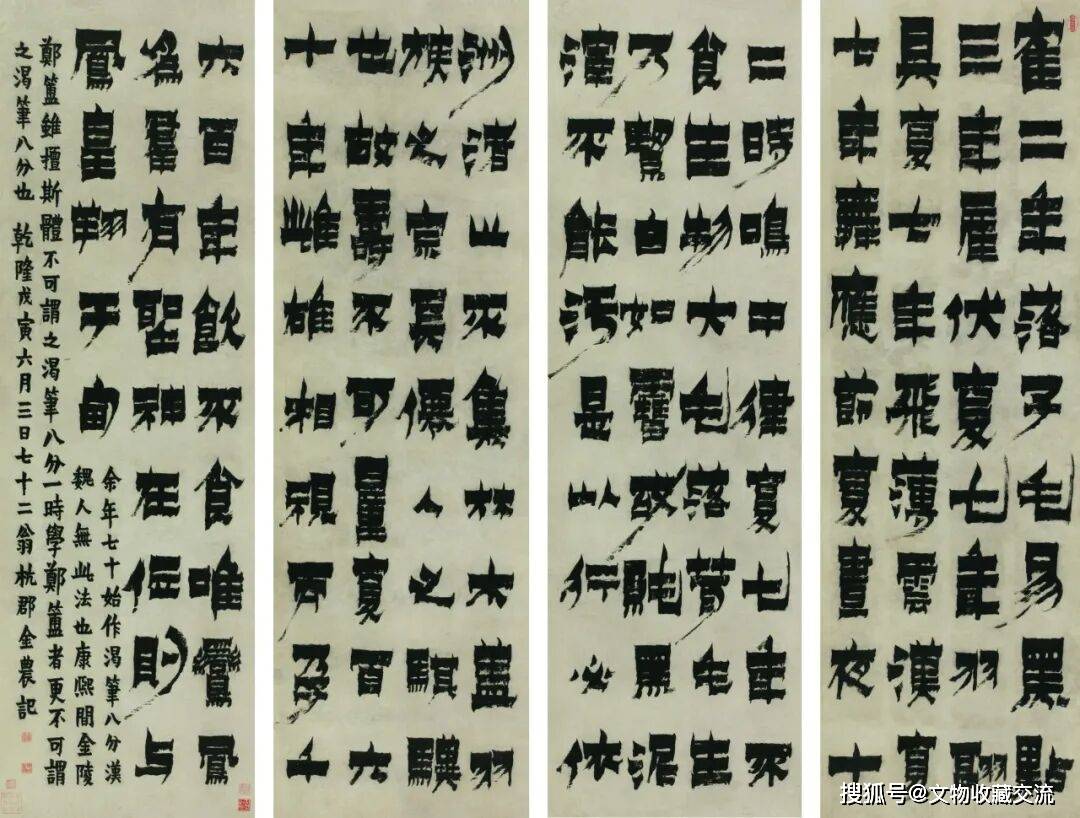 寉二年落子毛易黑點
三年產伏复七年羽翮
具复七年飛薄雲漢复
七年舞應節复晝夜十
二時鳴中律复七年不
食生物大毛落茸毛生
乃白如雪故黑泥
渾不能污是以行必依
洲渚山不集林木蓋羽
族之宗僊人之騏驥
也故壽不可量复百六
十年雌雄相視而孕千
六百年飲不食唯鸞鳳
為羣有聖神在位則与
鳳皇翔于甸
余年七十始作渴筆八分漢
魏人無此法也康熙間金陵
鄭簠雖擅斯體不可謂之渴筆八分一時學鄭簠者更不可謂
之渴筆八分也 乾隆戊寅六月三日七十二翁杭郡金農記
搜狐号@文物收藏交流